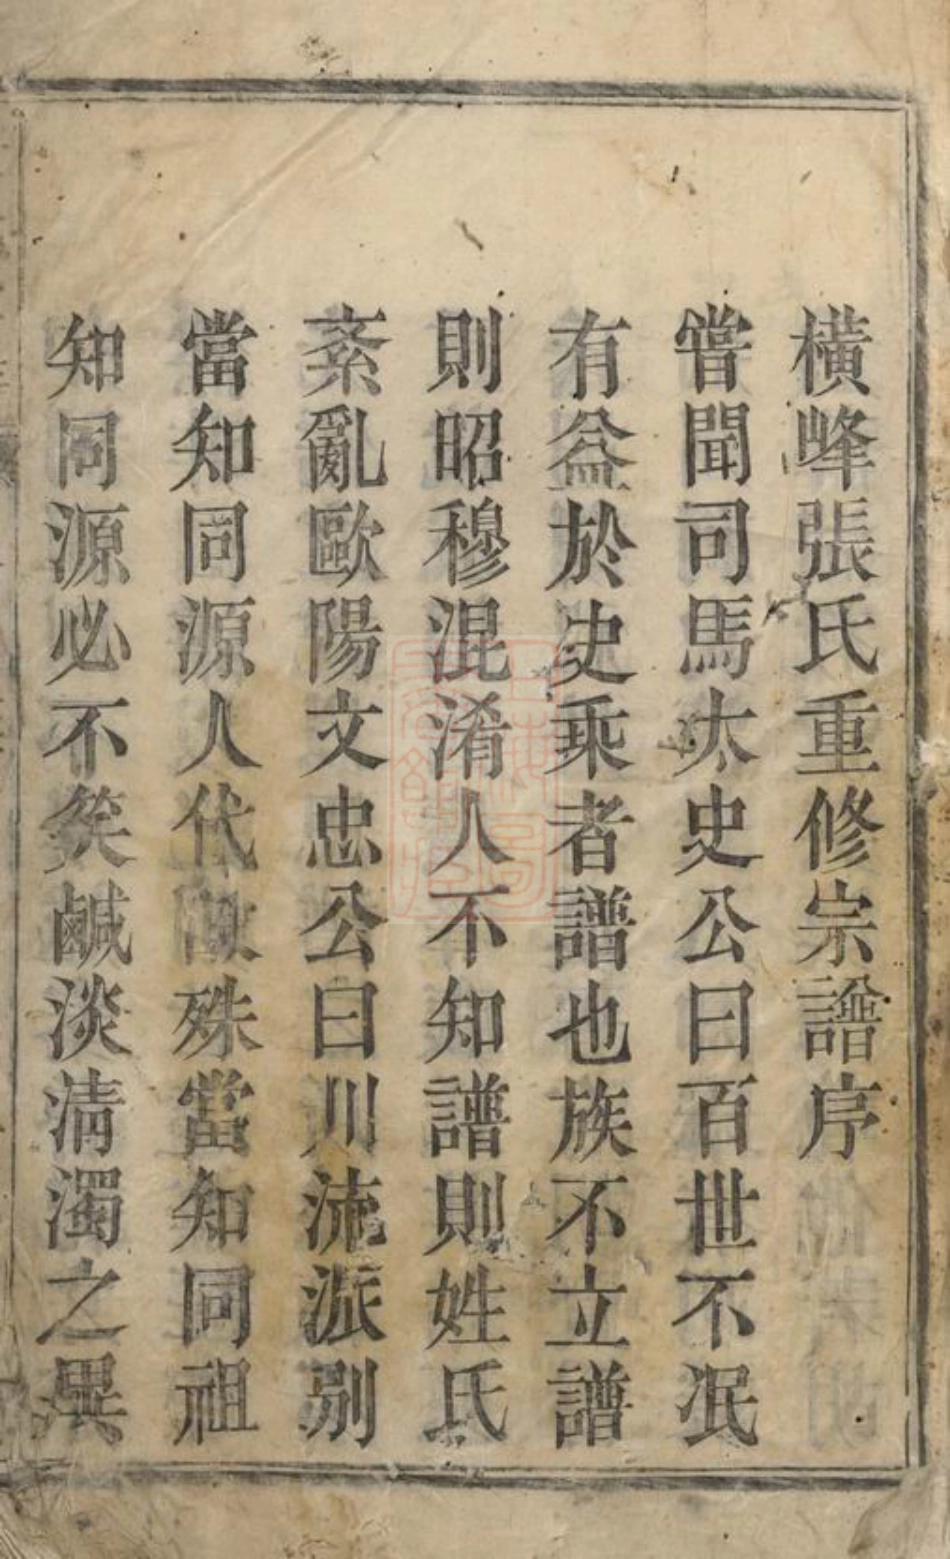 橫峰張氏重修宗譜序
嘗聞司馬太史公曰百世不泯
有益於史乘者譜也族不立譜
則昭穆混淆人不知譜則姓氏
紊亂歐陽文忠公曰川流派別
當知同源人代殊當知同祖
知同源必不矣鹹淡淸濁之異